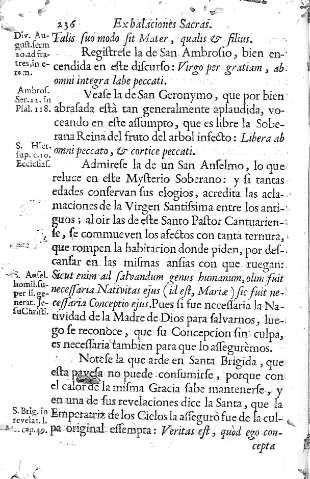 236 Exbalaciones Sacras.
Div. Au-
gust. serm
20. ad fra-
tres, in e-
rem.
Talis suo modo sit Mater, qualis & filius.
Registrese la de San Ambrosio, bien en-
cendida en este discurso: Virgo per gratiam, ab
omni integra labe peccati.
Ambros.
Ser. 22. in
Psal. 118.
Vease la de San Geronymo, que por bien
abrasada està tan generalmente aplaudida, vo-
ceando en este assumpto, que es libre la Sobe-
rana Reina del fruto del arbol infecto: Libera ab
omni peccato, & cortice peccati.
S. Hier.
sup. c. 10.
Ecclesias.
Admirese la de un San Anselmo, lo que
reluce en este Mysterio Soberano: y si tantas
edades conservan sus elogios, acredita las acla-
maciones de la Virgen Santissima entre los anti-
guos; al oir las de este Santo Pastor Cantuarien-
se, se commueven los afectos con tanta ternura,
que rompen la habitacion donde piden, por des-
cansar en las mismas ansias con que ruegan:
Sicut enim ad salvandum genus humanum, olim fuit
necessaria Nativitas ejus (id est, Mariæ) sic fuit ne-
cessaria Conceptio ejus. Pues si fue necessaria la Na-
tividad de la Madre de Dios para salvarnos, lue-
go se reconoce, que su Concepcion sin culpa,
es necessaria tambien para que lo assegurèmos.
S. Ansel.
homil. su-
per li. ge-
nerat. Je-
su Christi.
Notese la que arde en Santa Brigida, que
esta pavesa no puede consumirse, porque con
el calor de la misma Gracia sabe mantenerse, y
en una de sus revelaciones dice la Santa, que la
Emperatriz de los Cielos la assegurò fue de la cul-
pa original essempta: Veritas est, quod ego con-
S. Brig. in
revelat. l.
cap. 49.
cepta